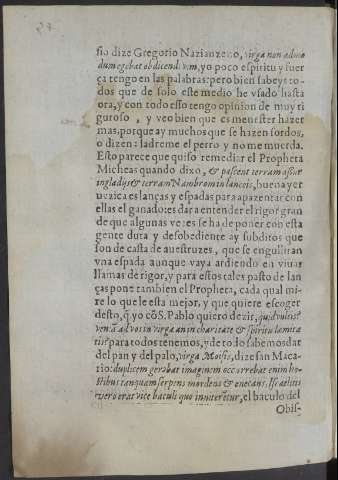 sio dize Gregorio Nazianzeno, virga non admo
dum egebat ob dicendi vim, yo poco espiritu y fuer
ça tengo en las palabras: pero bien sabeys to-
dos que de solo este medio he vsado hasta
ora, y con todo esso tengo opinion de muy ri
guroso, y veo bien que es menester hazer
mas, porque ay muchos que se hazen sordos,
o dizen: ladreme el perro y no me muerda.
Esto parece que quiso remediar el Propheta
Micheas quando dixo, & pascent terram assur
in gladijs & terram Nambrom in lanceis, buena yer
ua zica es lanças y espadas para apazentar con
ellas el ganado: es dar a entender el rigor gran
de que algunas vezes se ha de poner con esta
gente dura y desobediente ay subditos que
son de casta de auestruzes, que se engulliran
vna espada aunque vaya ardiendo en viuas
llamas de rigor, y para estos tales pasto de lan
ças pone tambien el Propheta, cada qual mi-
re lo que le esta mejor, y que quiere escoger
desto, q̃ yo cõ S. Pablo quiero dezir, quid vultis?
veniã ad vos in virga an in charitate & spiritu lenita
tis? para todos tenemos, y de todo sabemos dar
del pan y del palo, virga Moisis, dize san Maca-
rio: duplicem gerebat imaginem occurrebat enim ho-
stibus tanquam serpens mordens & enecans. Israelitis
vero erat vice baculi quo inniterẽtur, el baculo del
Obis-